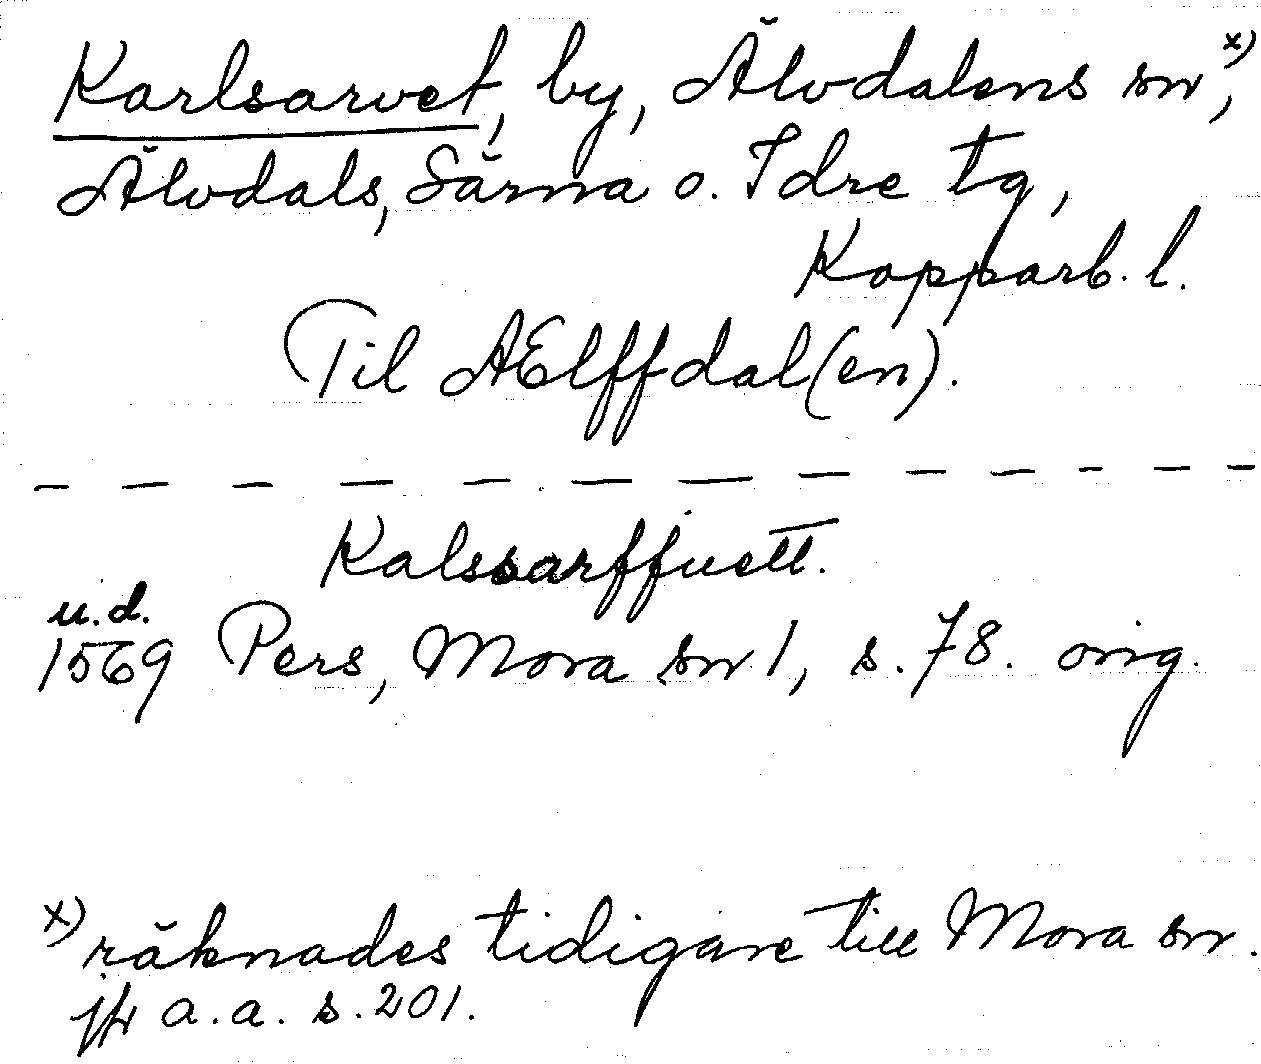 Karlsarvet, by, Älvdalens sn x),
Älvdals, Särna o. Idre tg,
Kopparb. l.
Til AElffdal(en).
Kalssarffuett.
u.d.
1569 Pers, Mora sn 1, s. 78. orig.
x) räknades tidigare till Mora sn.
jfr a.a. s. 201.